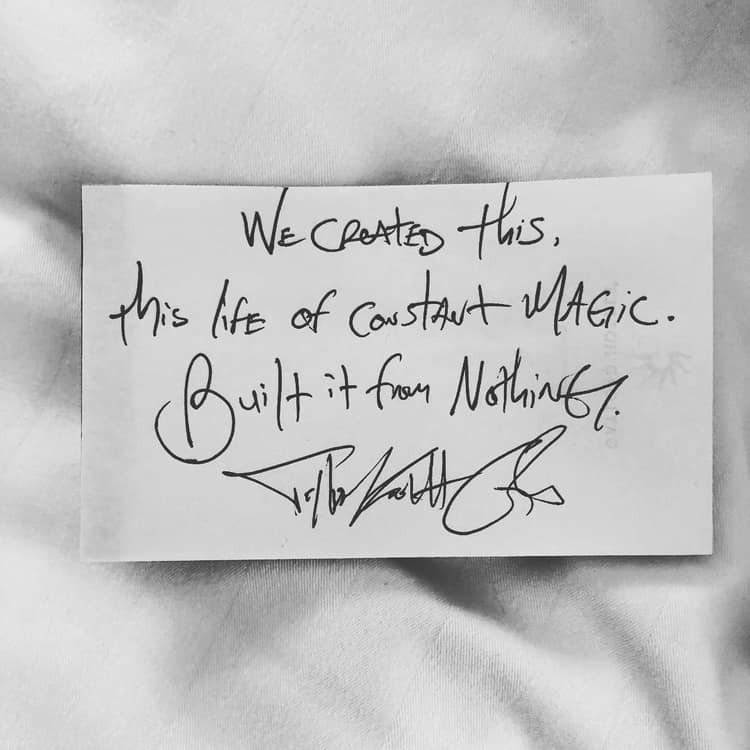 We Created this,
this life of constant Magic.
Built it from Nothing.